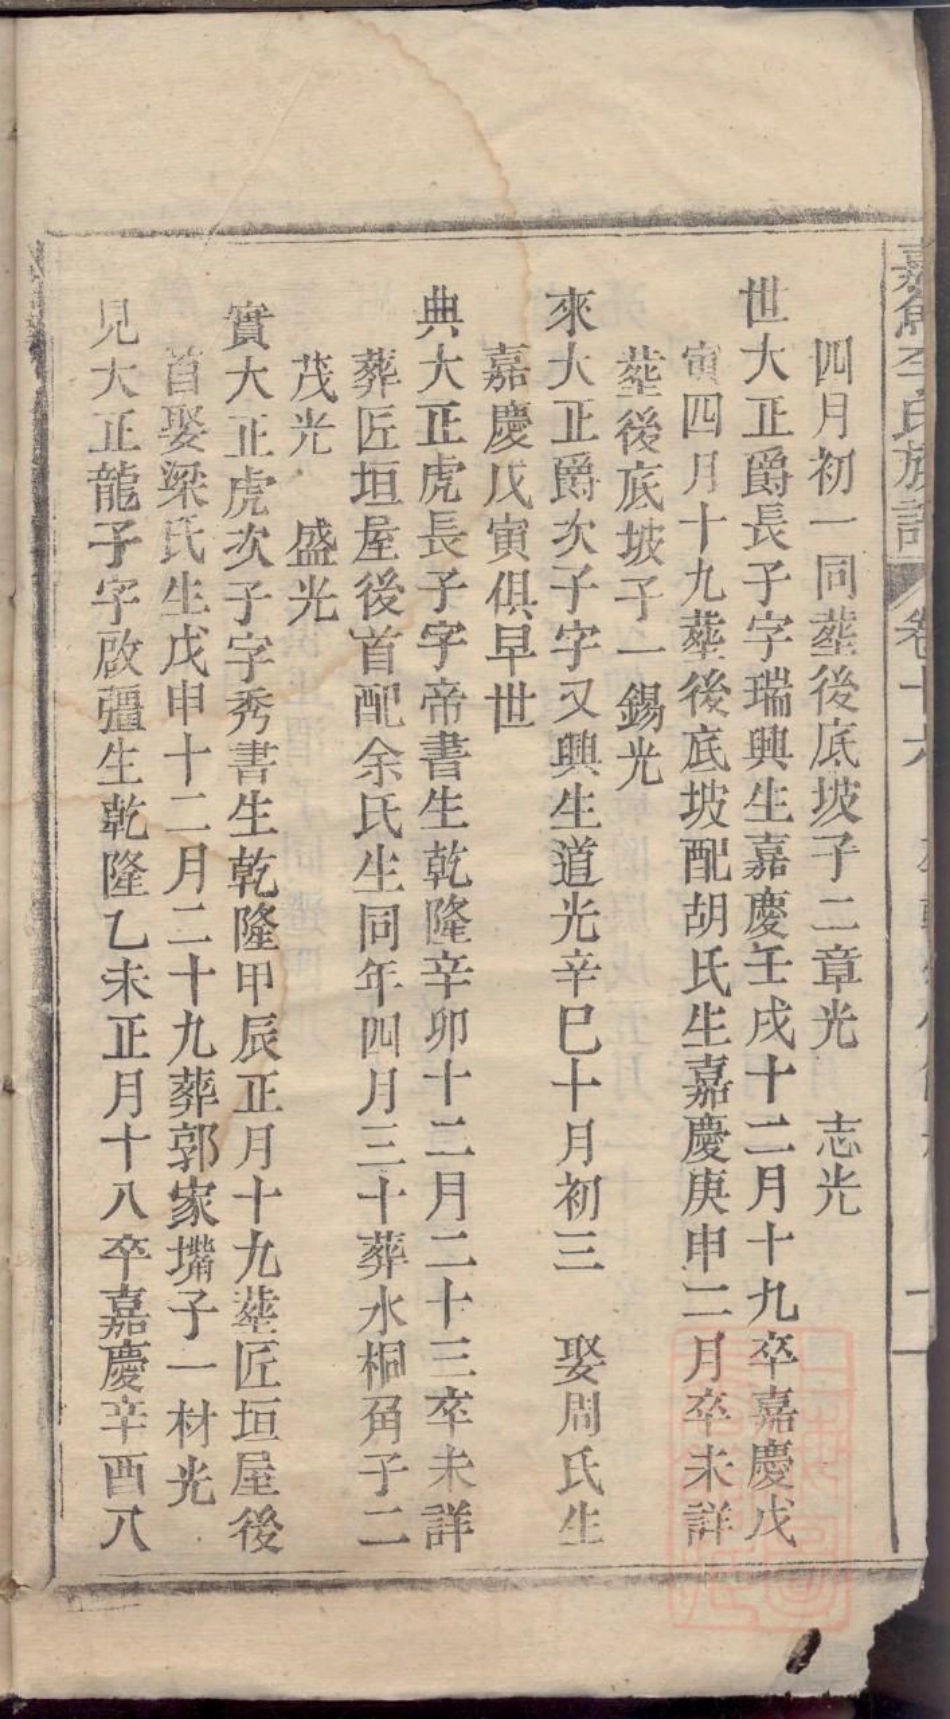 嘉魚李氏族譜 卷十六
四月初一同塟後底坡子二章光 志光
世大正爵長子字瑞興生嘉慶壬戌十二月十九卒嘉慶戊
寅四月十九塟後底坡配胡氏生嘉慶庚申二月卒未詳
塟後底坡子一錫光
來大正爵次子字又興生道光辛巳十月初三 娶周氏生
嘉慶戊寅俱早世
典大正虎長子字帝書生乾隆辛卯十二月二十三卒未詳
葬匠垣屋後首配余氏生同年四月三十葬水桐角子二
茂光 盛光
實大正虎次子字秀書生乾隆甲辰正月十九塟匠垣屋後
首娶梁氏生戊申十二月二十九葬郭家墈子一材光
見大正龍子字啟彊生乾隆乙未正月十八卒嘉慶辛酉八